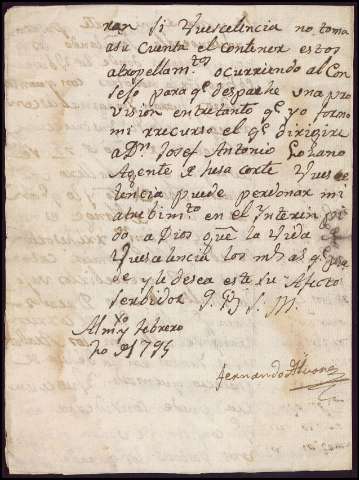 ran si Vuescelencia no toma
asu cuenta el contener estos
atropellam.tos ocurriendo al Con
sejo para q.e despache una pro
vision entretanto q.e yo formo
mi rrecurso el q.e dirigire
a D.n Josef Antonio Lozano
Agente de esa corte Vues
celencia puede perdonar mi
atrebim.to en el Interin pi
do a Dios g.e la Vida de
Vuescelencia los m.s a.s q.e pue
de y le desea este su Afecto
serbidor Q. B. S. M.
febrero
de 1795
Fernando Alvarez